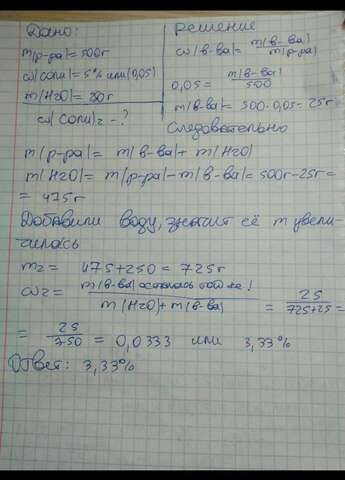 Дано:
m(р-ра)=500г
ω(соли)=5% или(0,05)
m(H2O)=
ω(соли)2-?
Решение
ω(в-ва)= m(в-ва)/m(р-ра)
0,05= m(в-ва)/500
m(в-ва)= 500·0,05=25г
Следовательно
m(р-ра)= m(в-ва)+m(H2O)
m(H2O)= m(р-ра)-m(в-ва)=500г-25г=
= 475г
Добавили воду, значит её m увели-
чилась
m2= 475+250=725г
ω2= m(в-ва) осталась той же!/m(H2O)+m(в-ва) = 25/725+25 =
= 25/750 = 0,0333 или 3,33%
Ответ: 3,33%